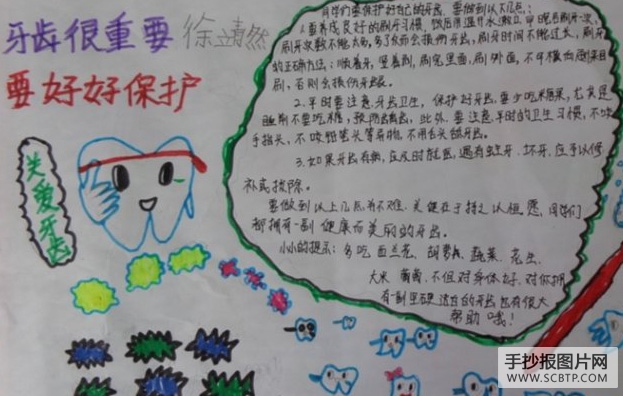 牙齿很重要
徐靖然
要好好保护
关爱牙齿
同学们要保护好自己的牙齿，要做到以下几点：
1.要养成良好的刷牙习惯，饭后用温开水漱口，早晚各刷牙一次，
刷牙次数不能太多，多了反而会损伤牙齿，刷牙时间不能过长，刷牙
的正确方法：顺着牙，竖着刷，刷完里面，刷外面，不可横向刷来回
刷，否则会损伤牙龈。
2.平时要注意牙齿卫生，保护好牙齿，要少吃糖果，尤其是
睡前不要吃糖，预防龋齿。此外，要注意平时的卫生习惯，不吮
手指头，不咬铅笔头等异物，不用舌头舔牙齿。
3.如果牙齿有病，应及时就医，遇有蛀牙、坏牙，应予以修
补或拔除。
要做到以上几点并不难，关键在于持之以恒，愿同学们
都拥有一副健康而美丽的牙齿。
小小的提示：多吃西兰花、胡萝卜、蔬菜、花生、
大米 葡萄，不但对身体好，对你拥
有一副坚硬洁白的牙齿也有很大
帮助哦！
手抄报图片网
WWW.SCBTP.COM